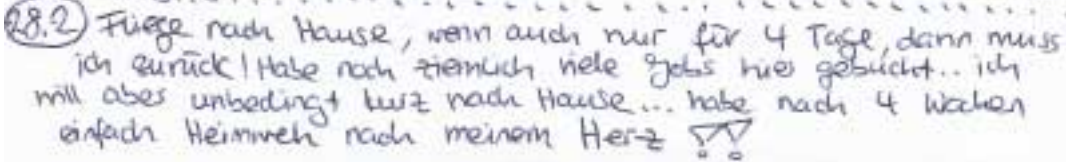 28.2 Fliege nach Hause, wenn auch nur für 4 Tage, dann muss
ich zurück! Habe noch ziemlich viele Jobs hier gebucht.. ich
will aber unbedingt kurz nach Hause... habe nach 4 Wochen
einfach Heimweh nach meinem Herz !!